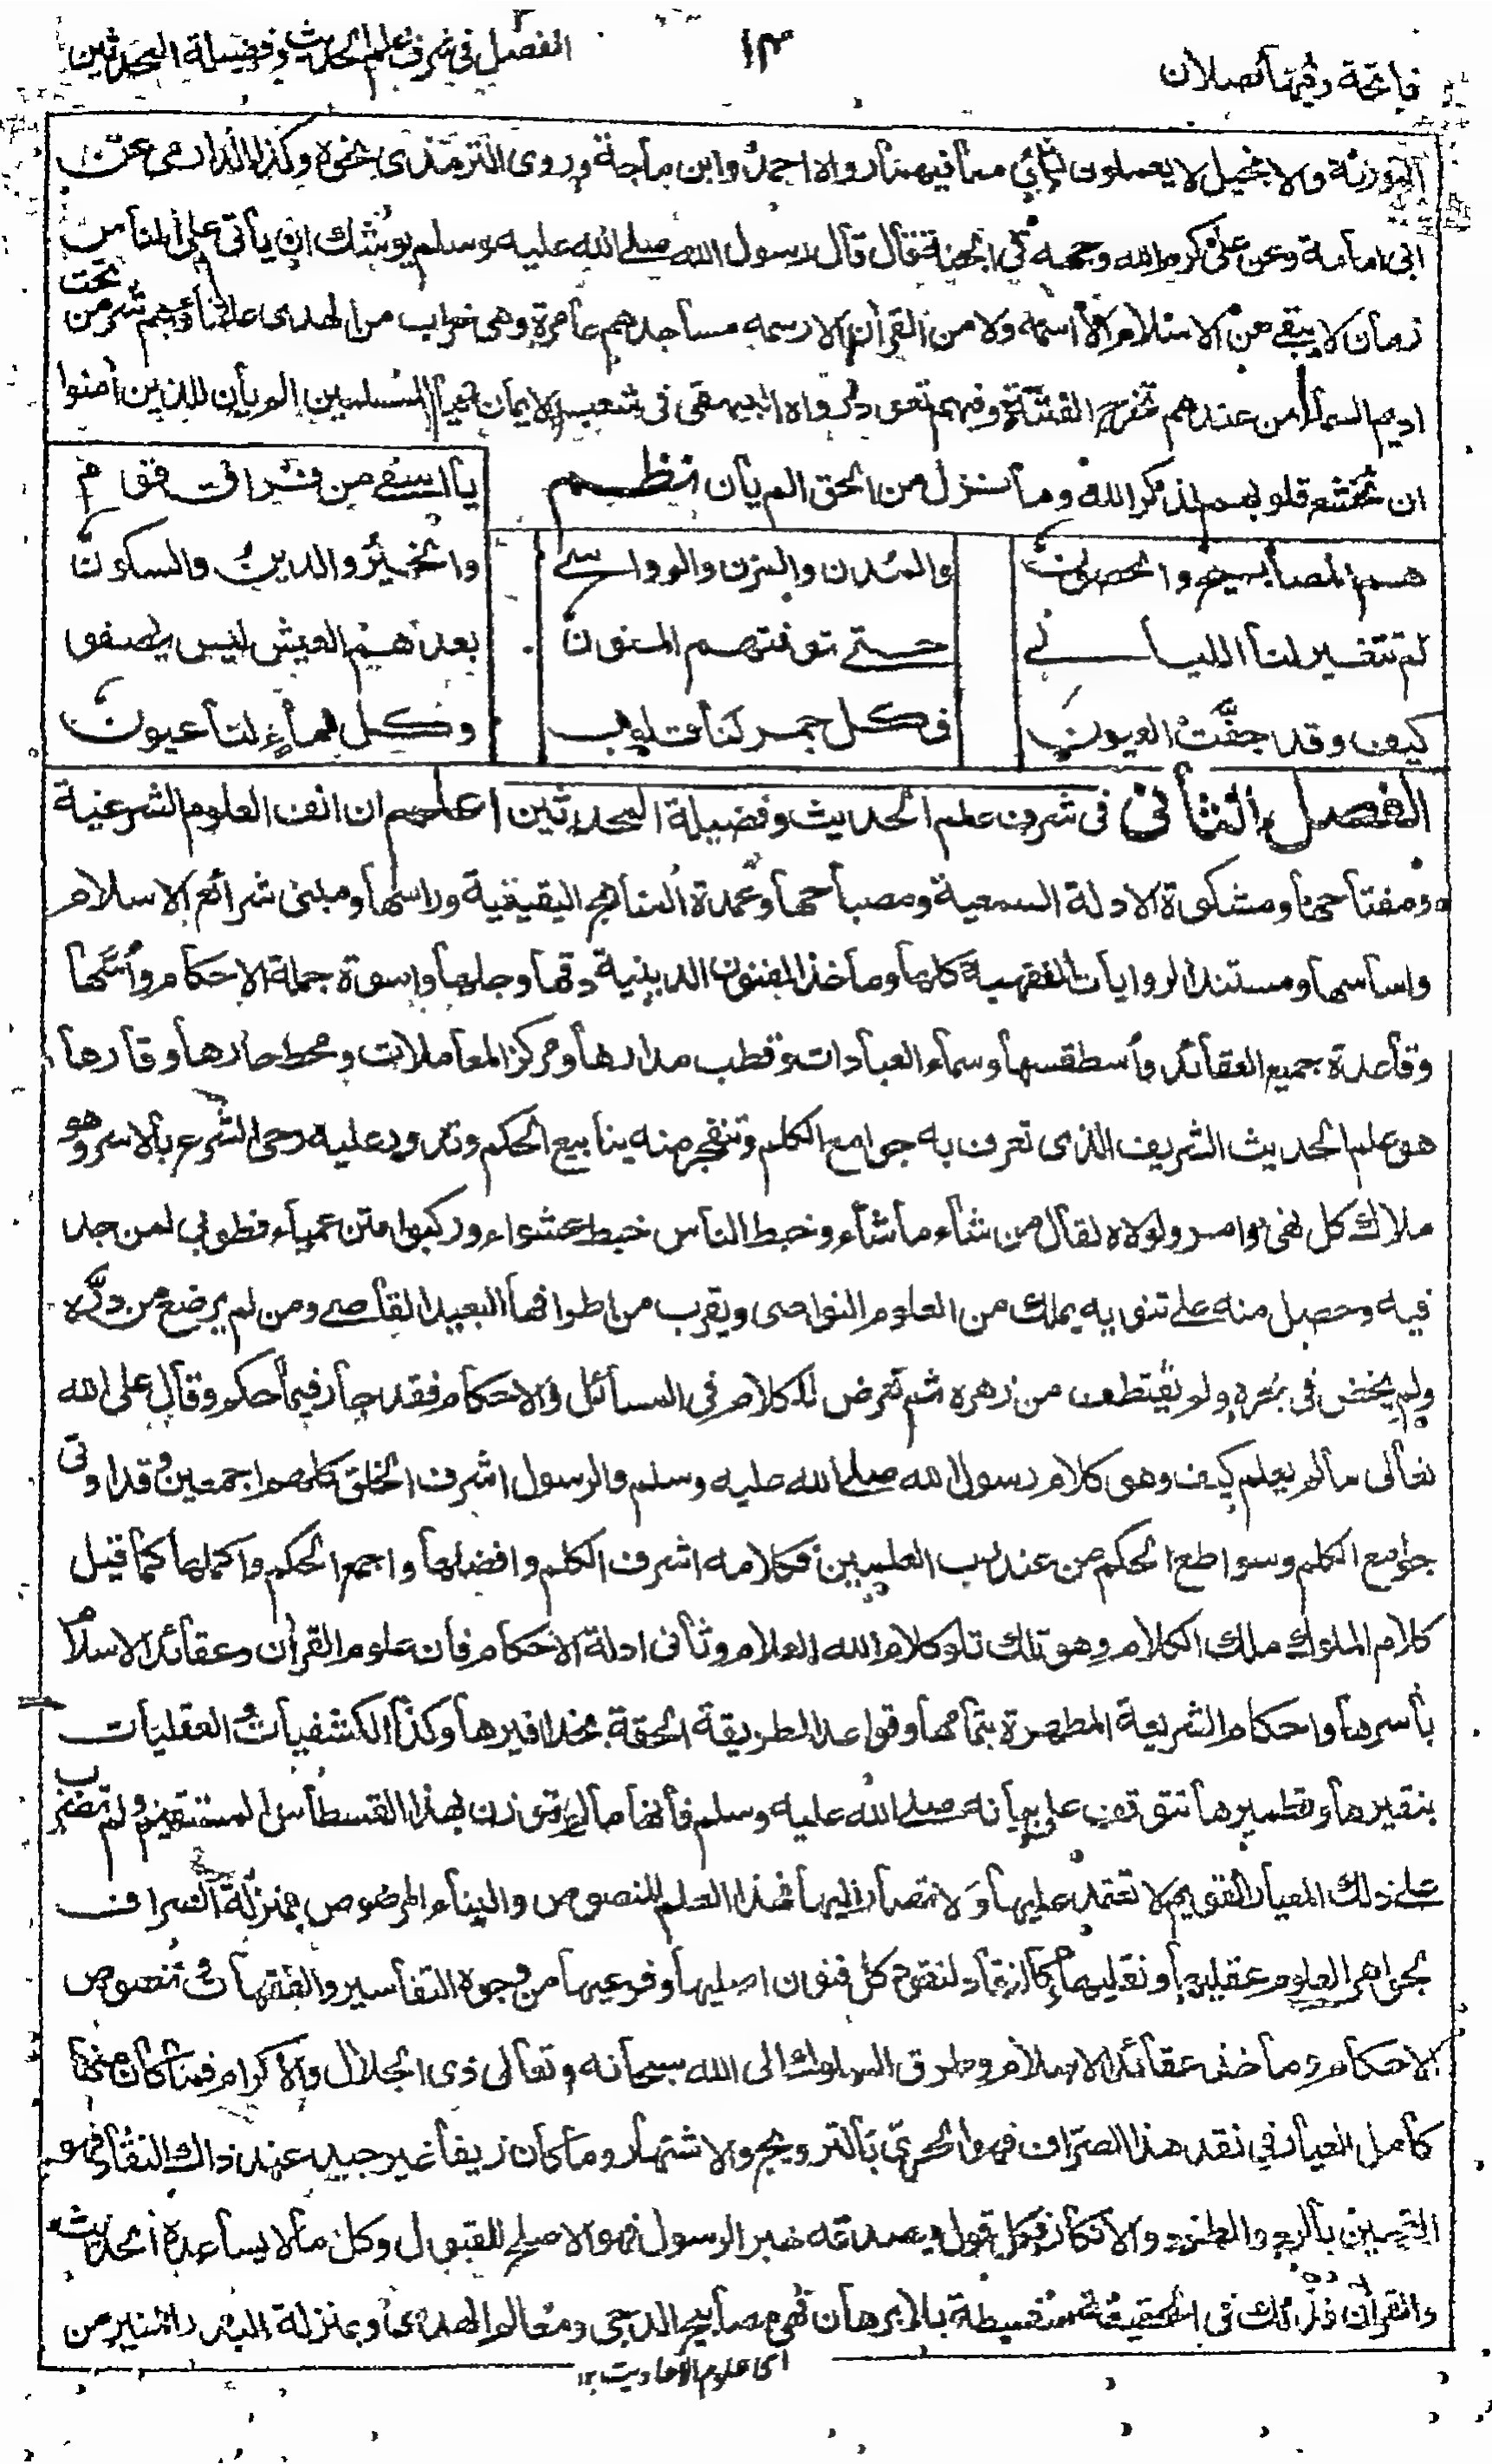 فاتحة وفيها فصلان
١٣
الفصل في شرف علم الحديث وفضيلة المحدثين
التورىة والانجيل لا يعملون بشئ مما فيهما رواه احمد وابن ماجة وروى الترمذى نحوه وكذا الدارمى عن
ابى امامة وعن على كرم الله وجهه فى الجنة قال قال رسول الله صلے الله عليه وسلم يوشك ان يأتى على الناس
زمان لا يبقے من الاسلام الا اسمه ولا من القرآن الا رسمه مساجدهم عامرة وهى خراب من الهدى علماؤهم شر من تحت
اديم السماء من عندهم تخرج الفتنة وفيهم تعود رواه البيهقى فى شعب الايمان فيا للمسلمين الم يأن للذين امنوا
ان تخشع قلوبهم لذكر الله وما نزل من الحق الم يأن نظم
يا اسفے من فراق قوم
هم المصابيح والحصون
والمدن والمزن والرواسے
والخير والدين والسكون
لم تتغير لنا الليالے
حتے توفتهم المنون
فكل جمر لنا قلوب
وكل ماء لنا عيون
الفصل الثانى فى شرف علم الحديث وفضيلة المحدثين اعلم ان انف العلوم الشرعية
ومفتاحها ومشكوة الادلة السمعية ومصباحها وعمدة المناهج اليقينية وراسها ومبنى شرائع الاسلام
واساسها ومستند الروايات الفقهية كلها وماخذ الفنون الدينية دقها وجلها واسوة جملة الاحكام واسها
وقاعدة جميع العقائد واسطقسها وسماء العبادات وقطب مدارها ومركز المعاملات ومحط حارها وقارها
هو علم الحديث الشريف الذى تعرف به جوامع الكلم وتنفجر منه ينابيع الحكم وتدور عليه رحى الشرع بالاسر وهو
ملاك كل نهى وامر ولولاه لقال من شاء ما شاء وخبط الناس خبط عشواء وركبوا متن عمياء فطوبى لمن جد
فيه وحصل منه على تنويه يملك من العلوم النواصى ويقرب من اطرافها البعيد القاصے ومن لم يرضع من دره
ولم يخض فى بحره ولم يقتطف من زهره ثم تعرض للكلام فى المسائل والاحكام فقد جار فيما حكم وقال على الله
تعالى ما لم يعلم كيف وهو كلام رسول الله صلے الله عليه وسلم والرسول اشرف الخلق كلهم اجمعين وقد اوتى
جوامع الكلم وسواطع الحكم من عند رب العلمين فكلامه اشرف الكلم وافضلها واجمع الحكم واكملها كما قيل
كلام الملوك ملك الكلام وهو تلك تلو كلام الله العلام وثانى ادلة الاحكام فان علوم القرآن وعقائد الاسلام
باسرها واحكام الشريعة المطهرة بتمامها وقواعد الطريقة الحقة بحذافيرها وكذا الكشفيات والعقليات
بنقيرها وقطميرها تتوقف على بيانه صلے الله عليه وسلم فانها ما لم توزن بهذا القسطاس المستقيم ولم تضرب
علے ذلك المعيار القويم لا تعتمد عليها ولا تصار اليها فهذا العلم المنصوص والبناء المرصوص بمنزلة الصراف
لجواهر العلوم عقليها ونقليها وكالنقاد لنقود كل فنون اصليها وفرعيها من وجوه التفاسير والفقهيات ونصوص
الاحكام وماخذ عقائد الاسلام وطرق السلوك الى الله سبحانه وتعالى ذى الجلال والاكرام فما كان منها
كامل العيار فى نقد هذا الصراف فهو الحرى بالترويج والاشتهار وما كان زيفا غير جيد عند ذاك النقاد فهو
القمين بالرد والطرد والانكار فكل قول يصدقه خبر الرسول فهو الاصلح للقبول وكل ما لا يساعده الحديث
والقرآن فذلك فى الحقيقة سفسطة بلا برهان فهى مصابيح الدجى ومعالم الهدى وبمنزلة البدر المنير من
اى علوم الاحاديث ١٢